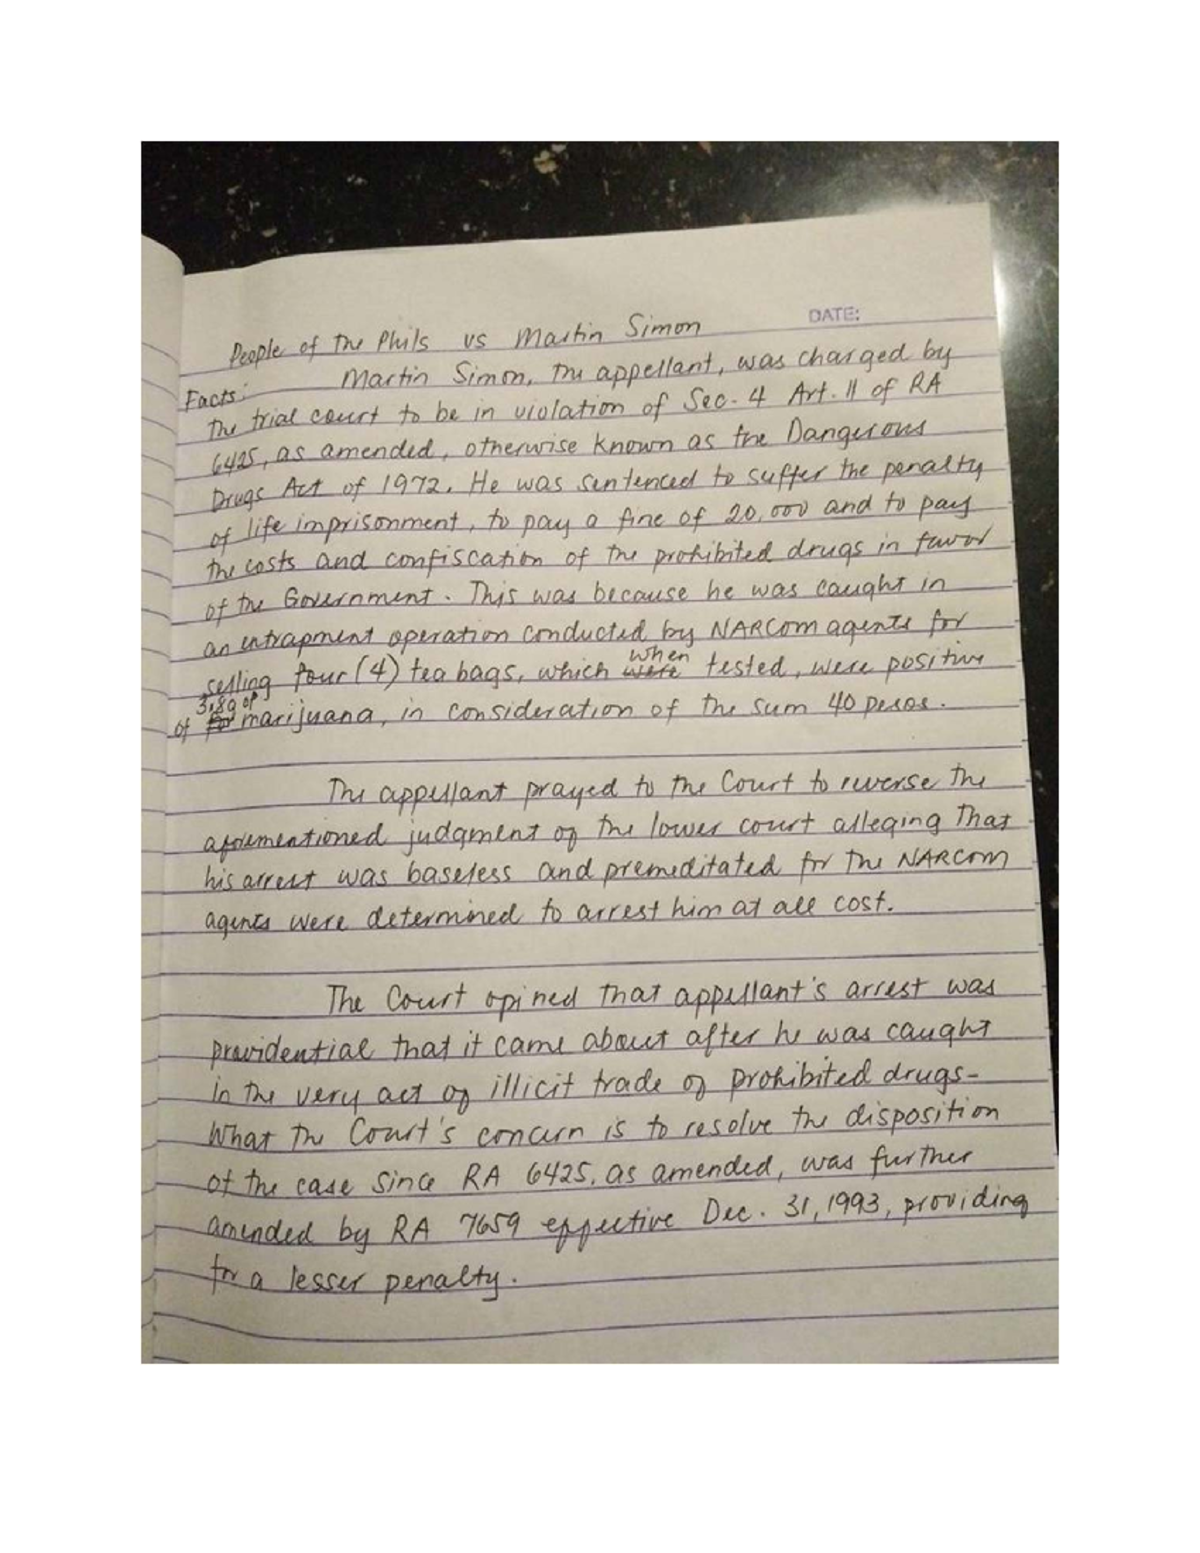 DATE:
People of the Phils vs Martin Simon
Facts: Martin Simon, the appellant, was charged by
the trial court to be in violation of Sec. 4 Art. II of RA
6425, as amended, otherwise known as the Dangerous
Drugs Act of 1972. He was sentenced to suffer the penalty
of life imprisonment, to pay a fine of 20,000 and to pay
the costs and confiscation of the prohibited drugs in favor
of the Government. This was because he was caught in
an entrapment operation conducted by NARCOM agents for
selling four (4) tea bags, which when tested, were positive
of 3.8g of marijuana, in consideration of the sum 40 pesos.
The appellant prayed to the Court to reverse the
aforementioned judgment of the lower court alleging that
his arrest was baseless and premeditated for the NARCOM
agents were determined to arrest him at all cost.
The Court opined that appellant's arrest was
providential that it came about after he was caught
in the very act of illicit trade of prohibited drugs-
What the Court's concern is to resolve the disposition
of the case since RA 6425, as amended, was further
amended by RA 7659 effective Dec. 31, 1993, providing
for a lesser penalty.